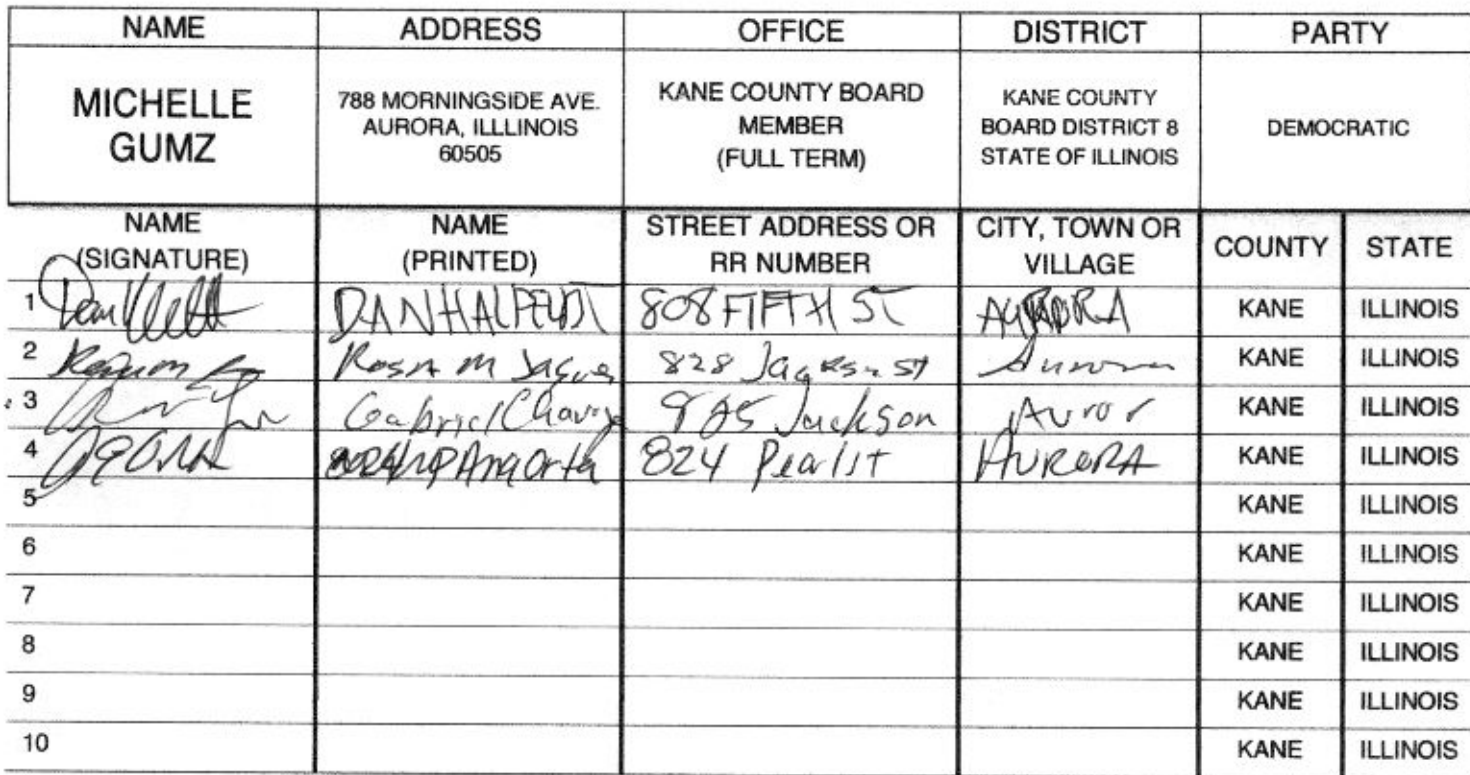 NAME ADDRESS OFFICE DISTRICT PARTY
MICHELLE GUMZ
788 MORNINGSIDE AVE. AURORA, ILLLINOIS 60505
KANE COUNTY BOARD MEMBER (FULL TERM)
KANE COUNTY BOARD DISTRICT 8 STATE OF ILLINOIS
DEMOCRATIC
NAME (SIGNATURE) NAME (PRINTED) STREET ADDRESS OR RR NUMBER CITY, TOWN OR VILLAGE COUNTY STATE
1 DAN 808 FIFTH ST AURORA KANE ILLINOIS
2 Rosa M 828 Jackson St Aurora KANE ILLINOIS
3 Gabriel Jackson Auror KANE ILLINOIS
4 Ana 824 Pearl st AURORA KANE ILLINOIS
5 KANE ILLINOIS
6 KANE ILLINOIS
7 KANE ILLINOIS
8 KANE ILLINOIS
9 KANE ILLINOIS
10 KANE ILLINOIS